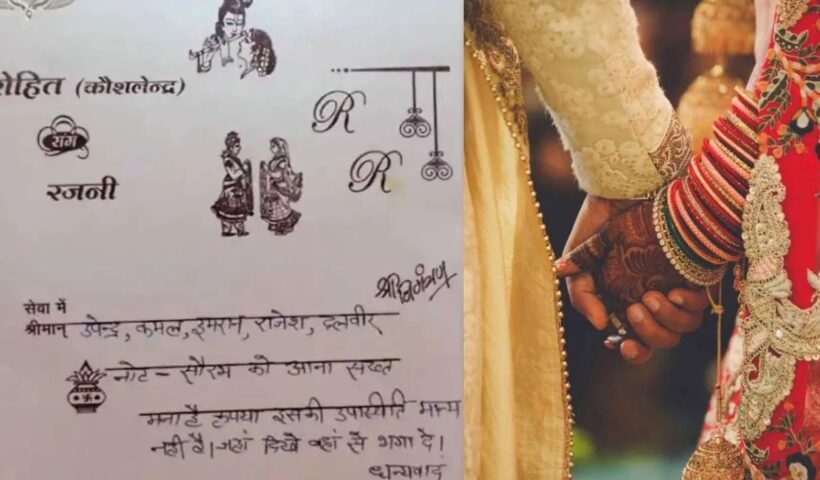 रोहित (कौशलेन्द्र)
R
संग
R
रजनी
श्री निमंत्रण
सेवा में
श्रीमान् उपेन्द्र, कमल, इमरान, राजेश, दलवीर
नोट - सौरभ को आना सख्त
मना है कृपया इसकी उपस्थिति मान्य
नहीं है। जहां दिखे वहां से भगा दे।
धन्यवाद